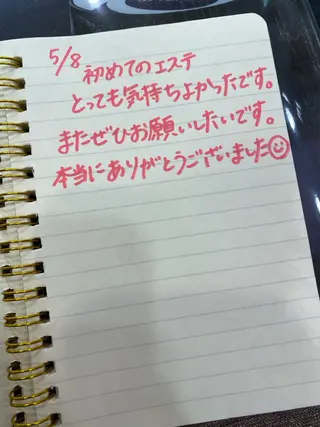 5/8 初めてのエステ
とっても気持ちよかったです。
またぜひお願いしたいです。
本当にありがとうございました☺